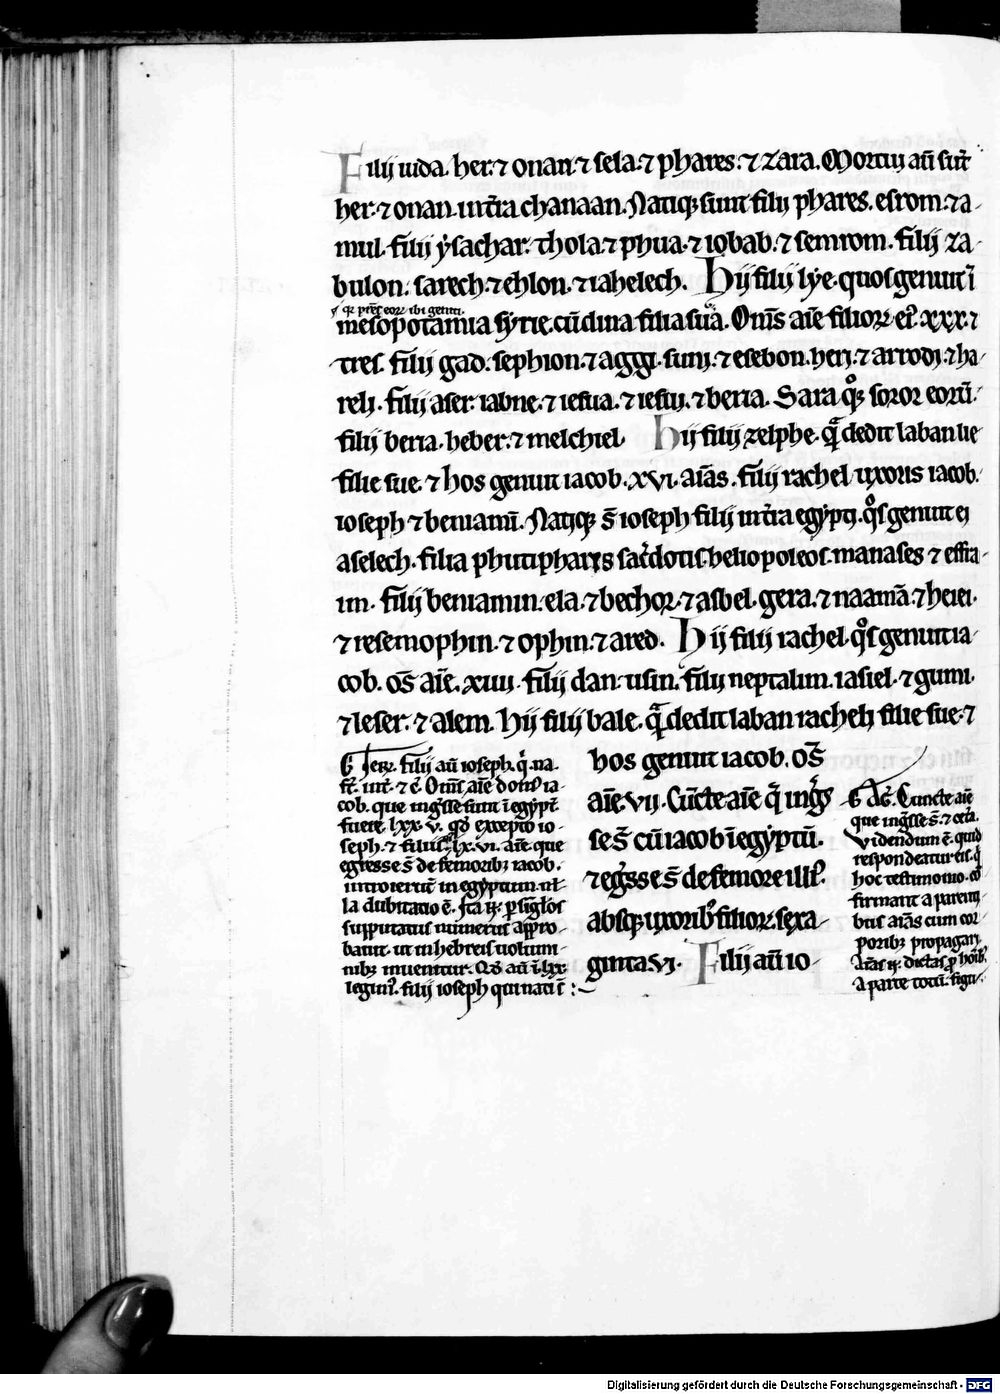 Filij iuda. her. ⁊ onan. ⁊ sela. ⁊ phares. ⁊ zara. Mortui aū sūt
her. ⁊ onan. in t̄ra chanaan. Natiq; sunt filij phares. esrom. ⁊ a-
mul. filij ẏsachar. thola. ⁊ phua. ⁊ iobab. ⁊ semrom. filij za-
bulon. sarech. ⁊ ehlon. ⁊ iahelech. Hij filij lẏe. quos genuit ī
mesopotamia sẏrie. cū dina filia sua. Om̄s aīe filioꝝ ei'. xxx. ⁊
tres. filij gad. sephion. ⁊ aggi. suni. ⁊ esebon. heri. ⁊ arrodi. ⁊ ha-
reli. filij aser. iabne. ⁊ iesua. ⁊ iesui. ⁊ beria. Sara qͦ; soror eorū.
filij beria. heber. ⁊ melchiel. Hij filij zelphe. q̄ dedit laban lie
filie sue. ⁊ hos genuit iacob. xvi. aīas. filij rachel uxoris iacob.
ioseph ⁊ beniamī. Natiq; s̄ ioseph filij in t̄ra egẏpti. qͦs genuit ei
aselech. filia phutipharis sac̄dotis heliopoleos. manases ⁊ effra-
im. filij beniamin. ela. ⁊ bechor. ⁊ asbel. gera. ⁊ naamā. ⁊ heiei.
⁊ resemophin. ⁊ ophin. ⁊ ared. Hij filij rachel. qͦs genuit ia-
cob. om̄s aīe. xiiii. filij dan. usin. filij neptalim. iasiel. ⁊ guni.
⁊ ieser. ⁊ alem. Hij filij bale. q̄ dedit laban racheli filie sue. ⁊
hos genuit iacob. om̄s
aīe. vij. Cūcte aīe q̄ ingͥs
se s̄ cū iacob ī egẏptū.
⁊ eg̃sse s̄ de femore illi'.
absq; uxorib' filioꝝ. sexa-
ginta. vi. Filij aū io-
filij aū ioseph. q̇ na-
ti s̄t in t̄. ⁊ c̄. Om̄s aīe dom' ia-
cob. que ing̃sse sunt ī egẏpt̄
fuere. lxx. v. qͦd excepto io-
seph. ⁊ filijs. lx. vi. aīe. que
egresse s̄ de femorib; iacob.
introierūt in egẏptum. nł-
la dubitatio ē. p sigłos
supputatus numerus appro-
batur. ut in hebreis uolumi-
nib; inuenitur. Qd̄ aū ī. lxx.
legim'. filij ioseph qui nati s̄t
Cuncte aīe
que ing̃sse s̄. ⁊ cet̄a.
Videndum ē. quid
respondeatur eis. q̇
hoc testimonio. cō
firmant a parenti-
bus aīas cum cor-
porib; propagari.
Aīas dictas p hoīb'.
a parte totū. figu-
Digitalisierung gefördert durch die Deutsche Forschungsgemeinschaft - DFG